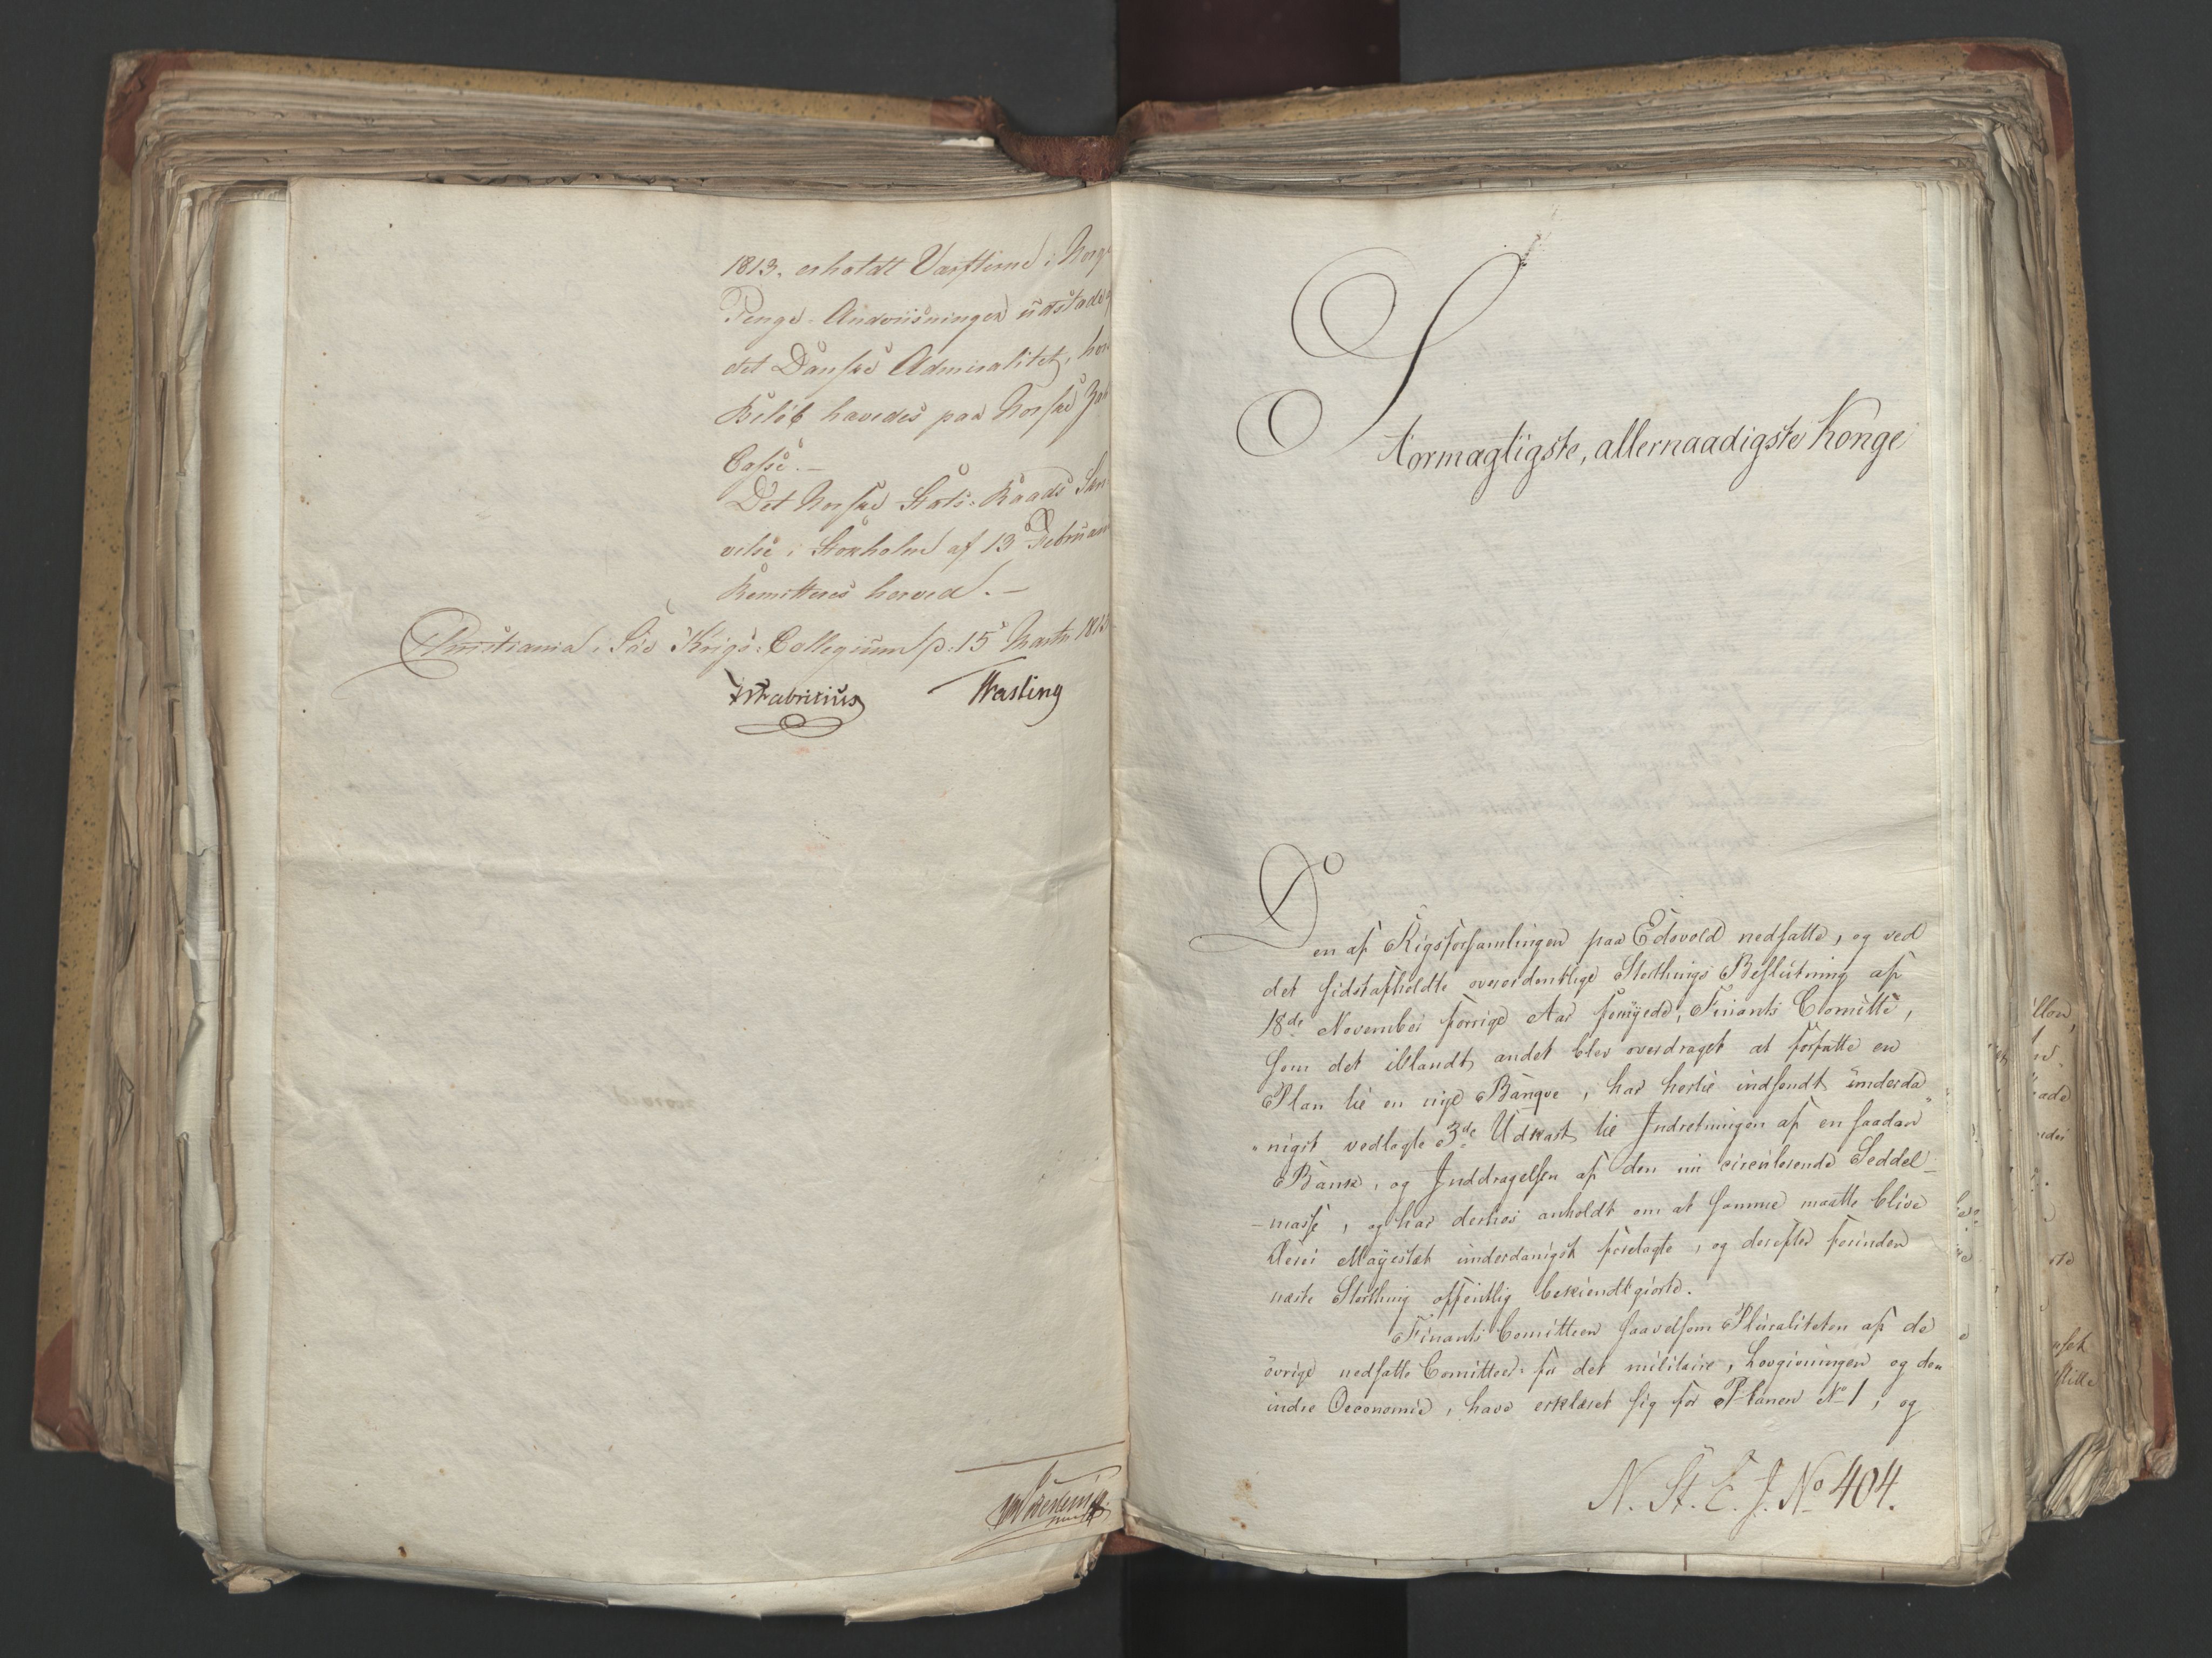 1813. erholdt Værfterne i Norge
Penge-Anviisninger udstæde
det Danske Admiralitet, hvor
Beløb hævedes paa Norske Zahl
Casse.-
Det Norske Stats-Raads Skri
velse i Stokholm af 13 Februar
Remitteres herved.-
Christiania i Søe Krigs-Collegium d: 15 Martii 1815
Fabritius Fasting
Stormægtigste, allernaadigste Konge
Den af Rigsforsamlingen paa Edsvold nedsatte, og ved
det sidstafholdte overordentlige Storthings Beslutning af
18de November forrige Aar fornyede, Finants Comitte,
som det iblandt andet blev overdraget at forfatte en
Plan til en nye Banqve, har hertil indsendt underda
"nigst vedlagte 3de Udkast til Indretningen af en saadan
Bank, og Inddragelsen af den nu circulerende Seddel-
-masse, og har derhos anholdt om at samme maatte blive
Deres Mayestæt underdanigst forelagte, og derefter forinden
næste Storthing offentlig bekiendtgiorte.
Finants Comitteen saavelsom Pluraliteten af de
övrige nedsatte Comitteer for det militaire, Lovgivningen og den
indre Oeconomie, have erklæret sig for Planen No 1, og
N. St. E. J. No 404.